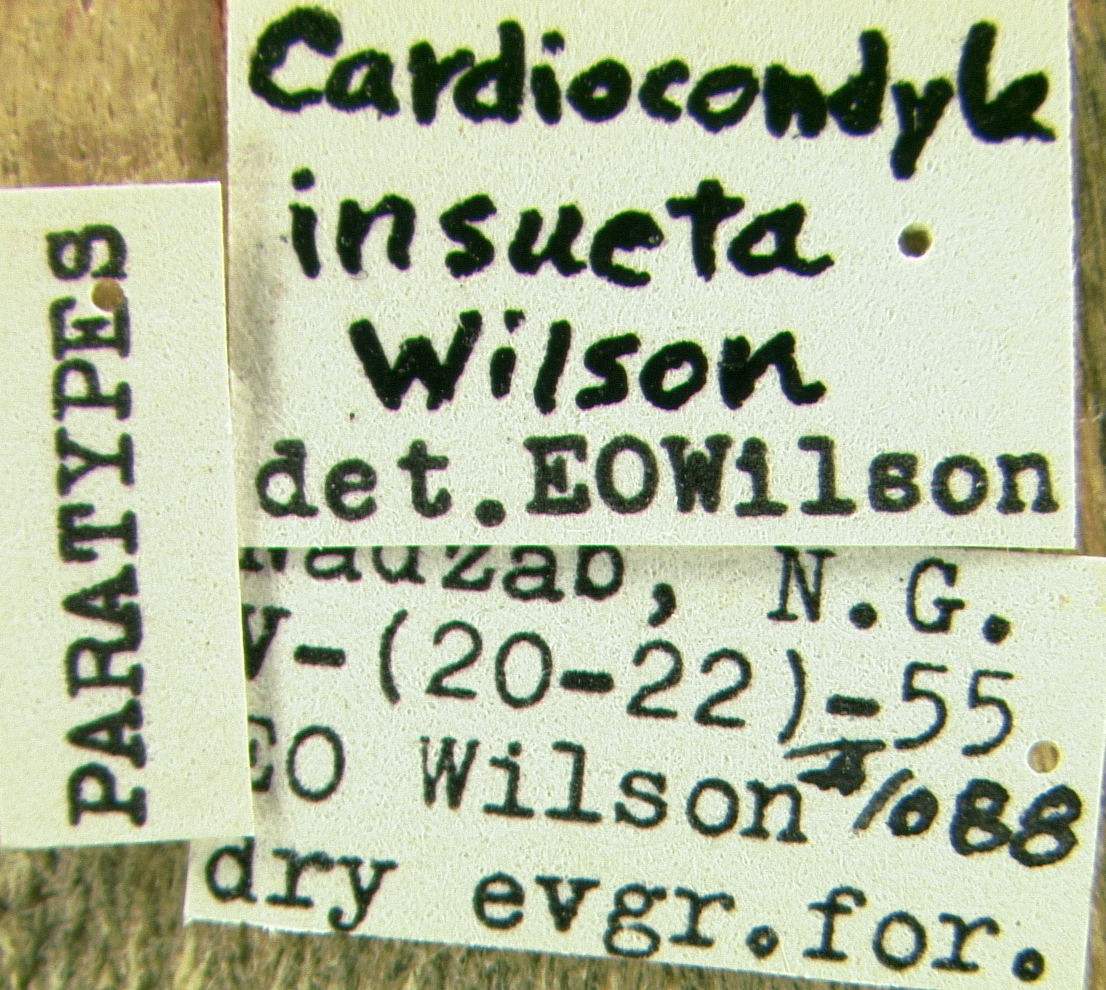 PARATYPES
Cardiocondyla
insueta
Wilson
det.EOWilson
Nadzab, N.G.
V-(20-22)-55
EO Wilson #1088
dry evgr.for.